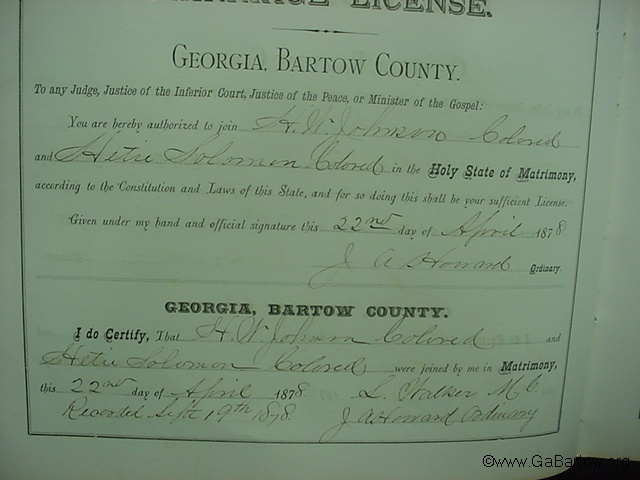 MARRIAGE LICENSE.
GEORGIA, BARTOW COUNTY.
To any Judge, Justice of the Inferior Court, Justice of the Peace, or Minister of the Gospel:
You are hereby authorized to join H. W. Johnson Colored
and Hetie Solomon Colored in the Holy State of Matrimony,
according to the Constitution and Laws of this State, and for so doing this shall be your sufficient License.
Given under my hand and official signature this 22nd day of April 1878
J A Howard Ordinary.
GEORGIA, BARTOW COUNTY.
I do Certify, That H. W. Johnson Colored and
Hetie Solomon Colored were joined by me in Matrimony,
this 22nd day of April 1878. L. Walker M. G.
Recorded Sept 19th 1878. J A Howard Ordinary
©www.GaBartow.org